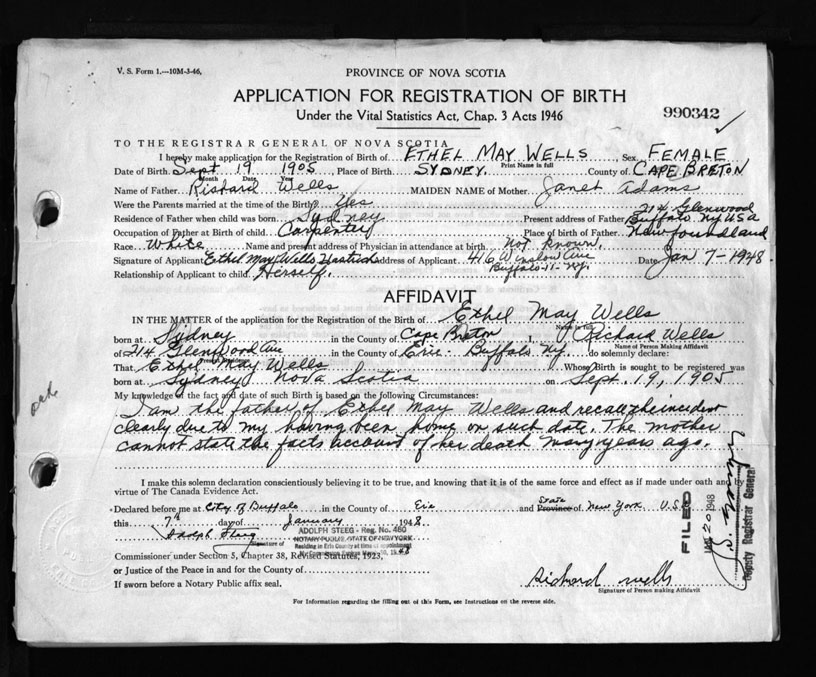 V. S. Form 1.—10M-3-46.
PROVINCE OF NOVA SCOTIA
APPLICATION FOR REGISTRATION OF BIRTH
Under the Vital Statistics Act, Chap. 3 Acts 1946
990342
TO THE REGISTRAR GENERAL OF NOVA SCOTIA
I hereby make application for the Registration of Birth of ETHEL MAY WELLS Sex FEMALE
Print Name in full
Date of Birth Sept 19 1905 Place of Birth SYDNEY County of CAPE BRETON
Month Date Year
Name of Father Richard Wells MAIDEN NAME of Mother Janet Adams
Were the Parents married at the time of the Birth? Yes 214 Glenwood
Residence of Father when child was born Sydney Present address of Father Buffalo NY USA
Occupation of Father at Birth of child Carpenter Place of birth of Father Newfoundland
Race White Name and present address of Physician in attendance at birth Not known.
Signature of Applicant Ethel May Wells Address of Applicant 416 Winslow Ave Date Jan 7-1948
Relationship of Applicant to child Herself. Buffalo-11-NY.
AFFIDAVIT
IN THE MATTER of the application for the Registration of Birth of Ethel May Wells
Name in full
born at Sydney in the County of Cape Breton I, Richard Wells
Name of Person Making Affidavit
of 214 Glenwood Ave in the County of Erie - Buffalo Ny. do solemnly declare:
Present Residence
That, Ethel May Wells Whose Birth is sought to be registered was
born at Sydney Nova Scotia on Sept. 19, 1905
My knowledge of the fact and date of such Birth is based on the following Circumstances:
I am the father of Ethel May Wells and recall the incident
clearly due to my having been home on such date. The mother
cannot state the facts account of her death many years ago.
I make this solemn declaration conscientiously believing it to be true, and knowing that it is of the same force and effect as if made under oath and by
virtue of The Canada Evidence Act.
Declared before me at City of Buffalo in the County of Erie and Province of New York U.S.
State
this 7th day of January 1948.
Adolph Steeg
Signature of
ADOLPH STEEG - Reg. No. 460
NOTARY PUBLIC, STATE OF NEW YORK
Residing in Erie County at time of appointment
Commissioner under Section 5, Chapter 38, Revised Statutes, 1923,
or Justice of the Peace in and for the County of
If sworn before a Notary Public affix seal.
Richard Wells
Signature of Person making Affidavit
For Information regarding the filling out of this Form, see Instructions on the reverse side.
FILED
20 1948
Deputy Registrar General